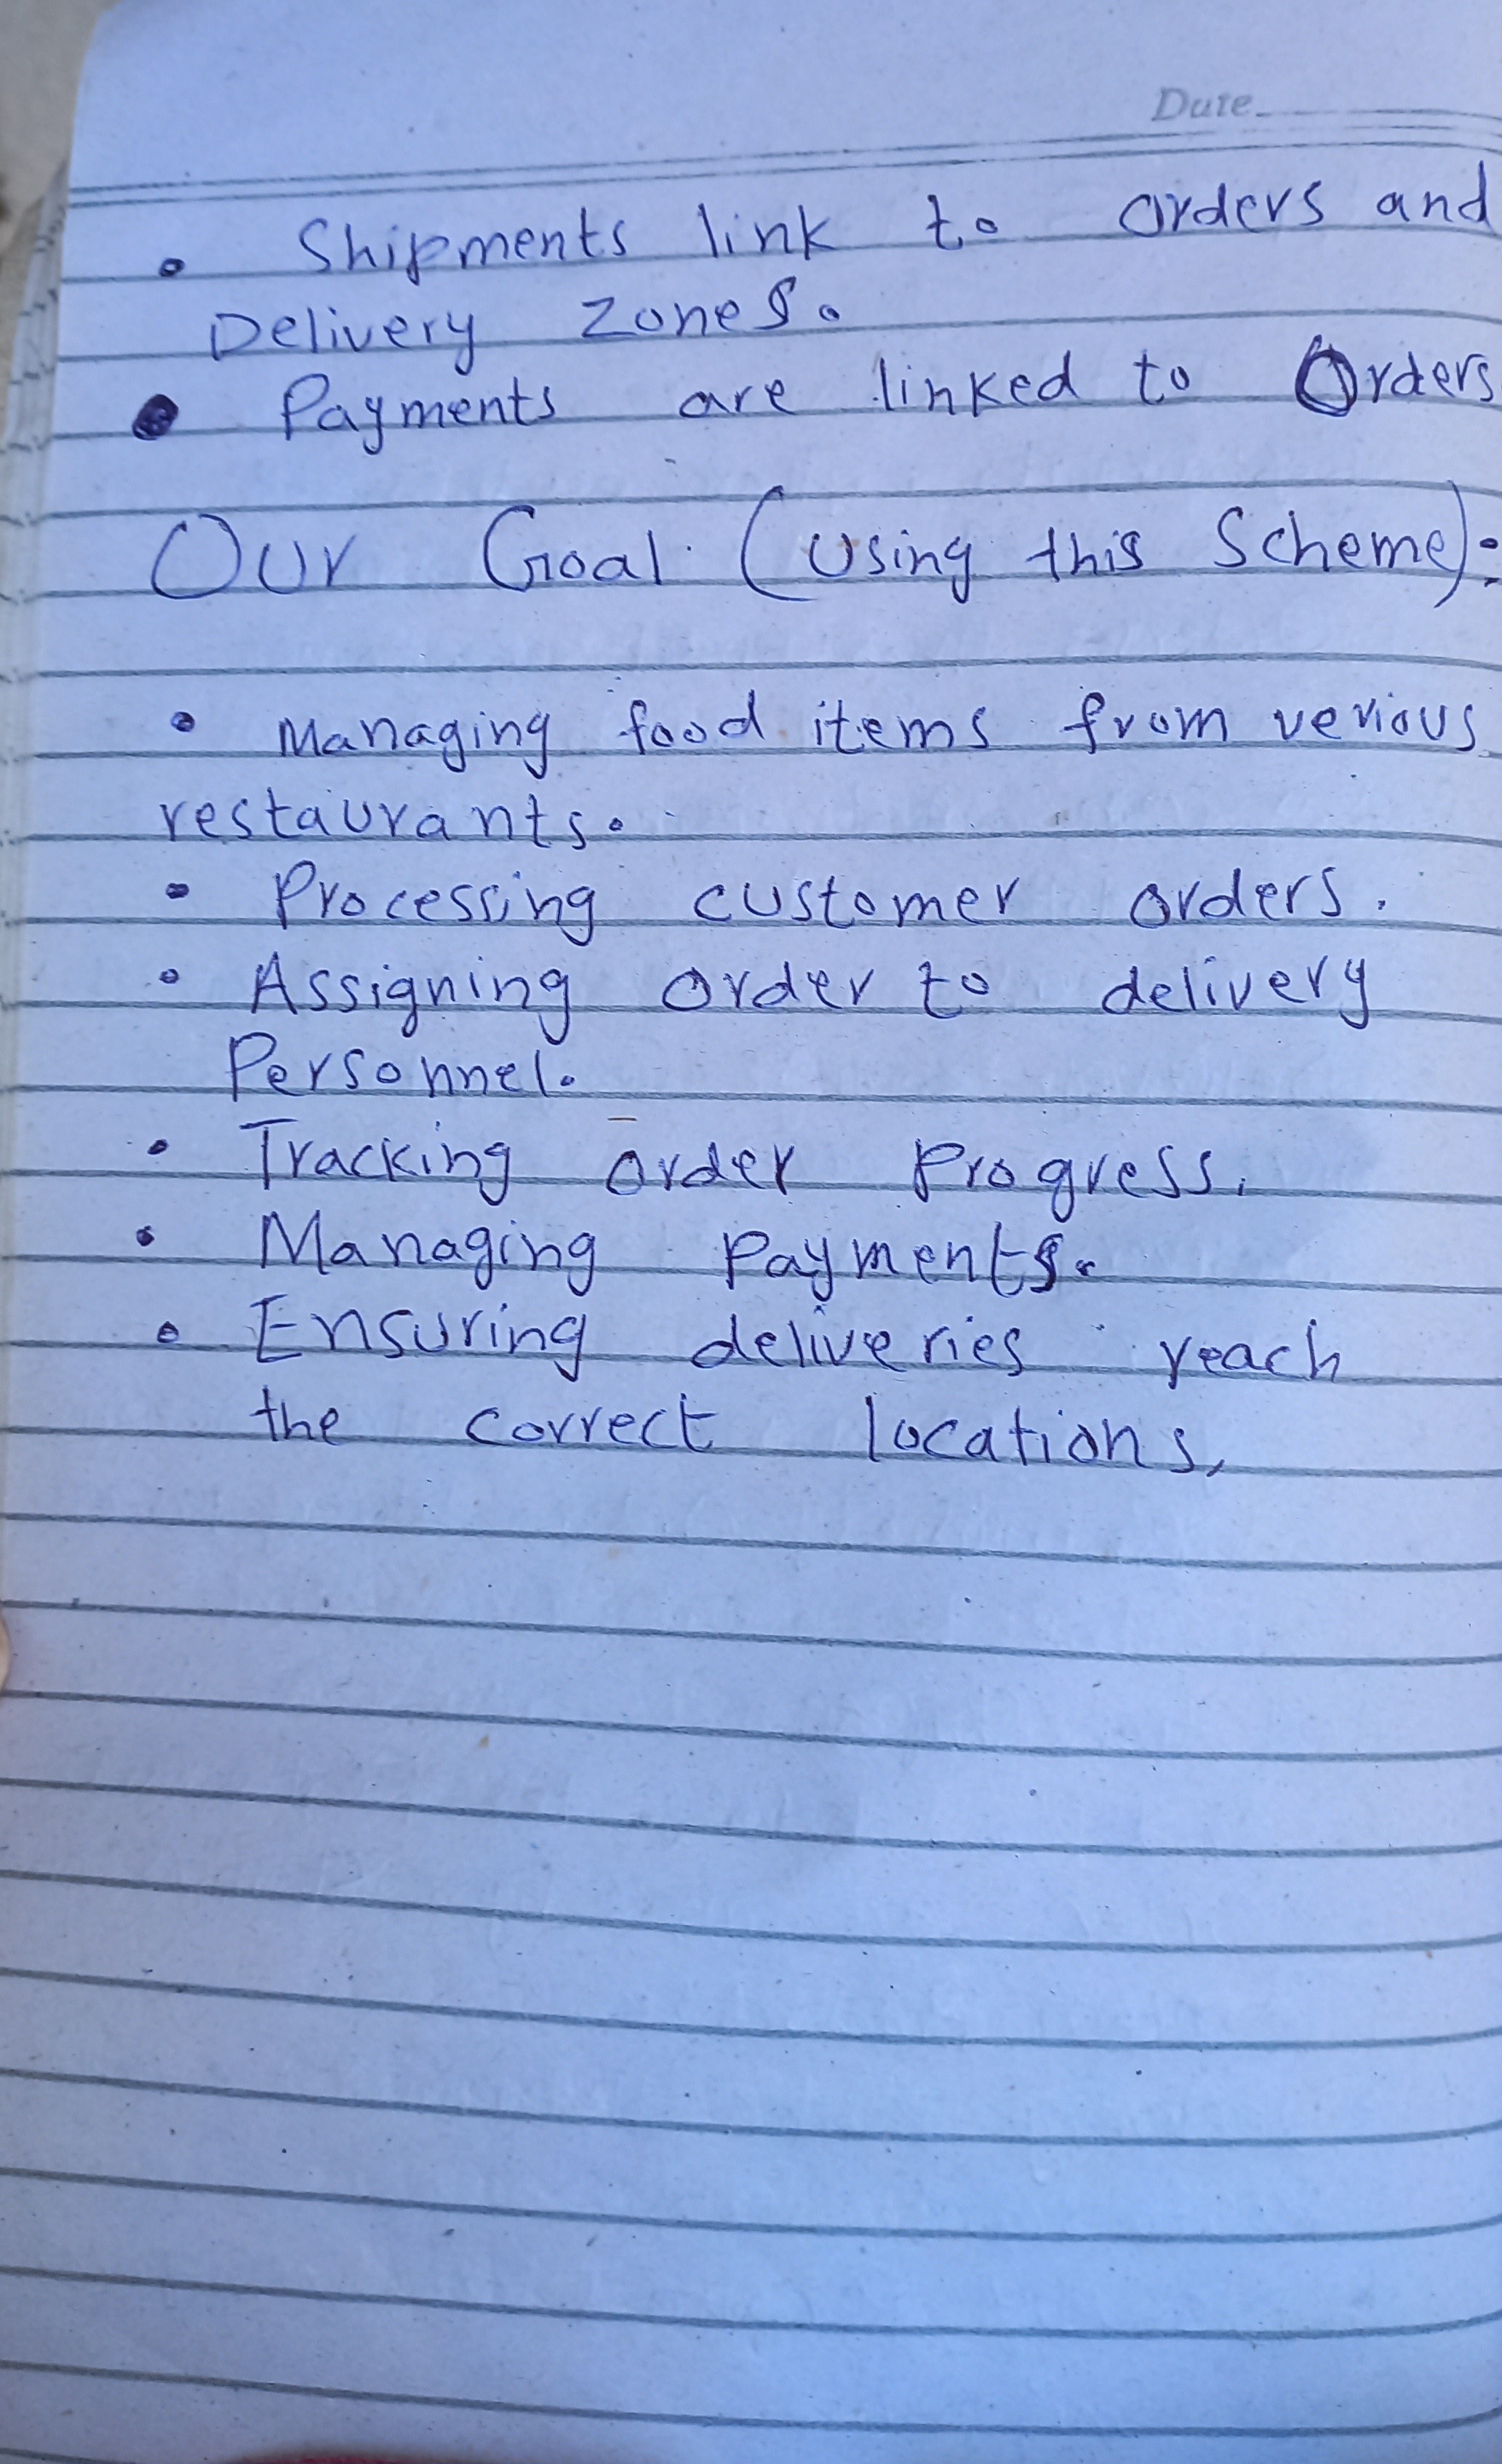 Date
• Shipments link to orders and
Delivery Zones.
• Payments are linked to Orders
Our Goal (Using this Scheme):
• Managing food items from verious
restaurants.
• Processing customer orders.
• Assigning order to delivery
Personnel.
• Tracking order Progress.
• Managing Payments.
• Ensuring deliveries reach
the correct locations,